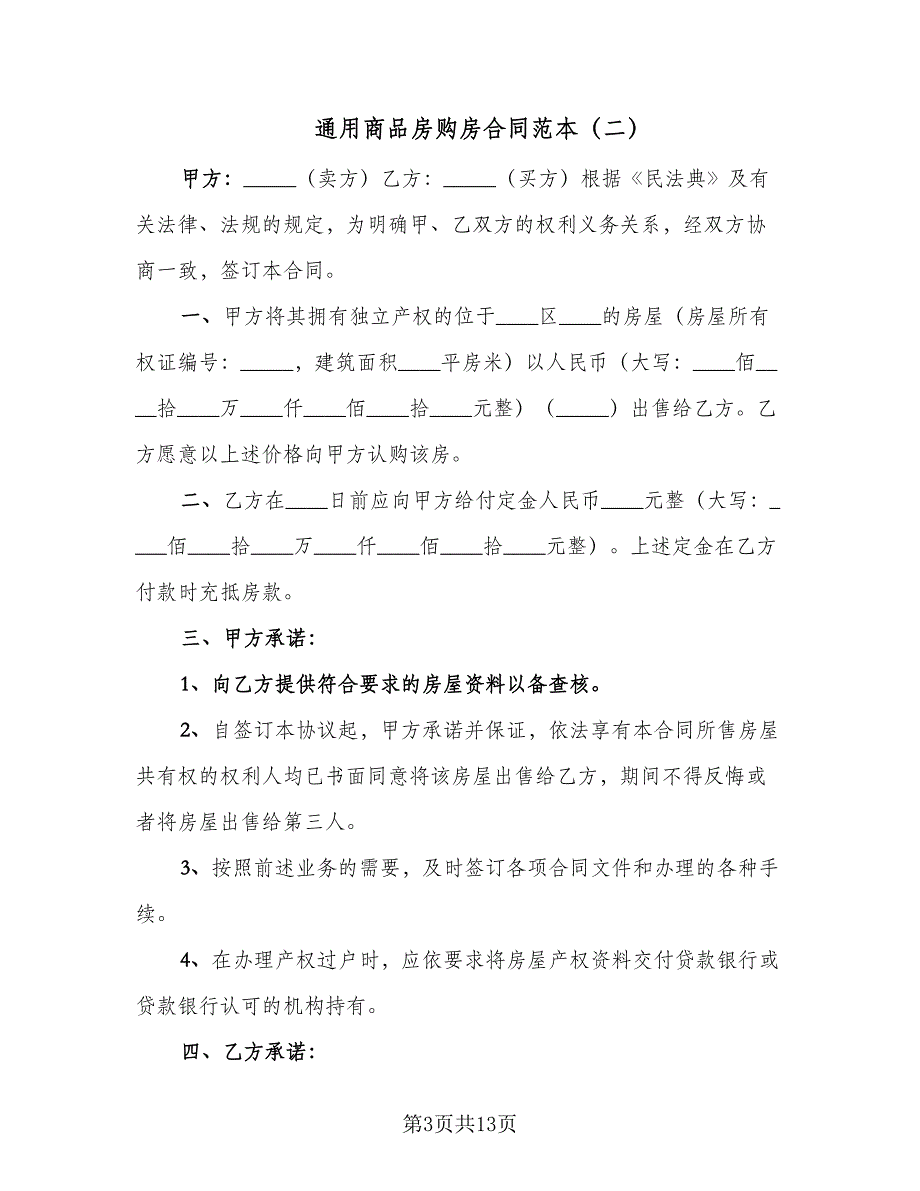 通用商品房购房合同范本（二）
甲方：_____（卖方）乙方：_____（买方）根据《民法典》及有
关法律、法规的规定，为明确甲、乙双方的权利义务关系，经双方协
商一致，签订本合同。
一、甲方将其拥有独立产权的位于____区____的房屋（房屋所有
权证编号：_____，建筑面积____平房米）以人民币（大写：____佰__
__拾____万____仟____佰____拾____元整）（_____）出售给乙方。乙
方愿意以上述价格向甲方认购该房。
二、乙方在____日前应向甲方给付定金人民币____元整（大写：_
___佰____拾____万____仟____佰____拾____元整）。上述定金在乙方
付款时充抵房款。
三、甲方承诺：
1、向乙方提供符合要求的房屋资料以备查核。
2、自签订本协议起，甲方承诺并保证，依法享有本合同所售房屋
共有权的权利人均已书面同意将该房屋出售给乙方，期间不得反悔或
者将房屋出售给第三人。
3、按照前述业务的需要，及时签订各项合同文件和办理的各种手
续。
4、在办理产权过户时，应依要求将房屋产权资料交付贷款银行或
贷款银行认可的机构持有。
四、乙方承诺：
第3页共13页